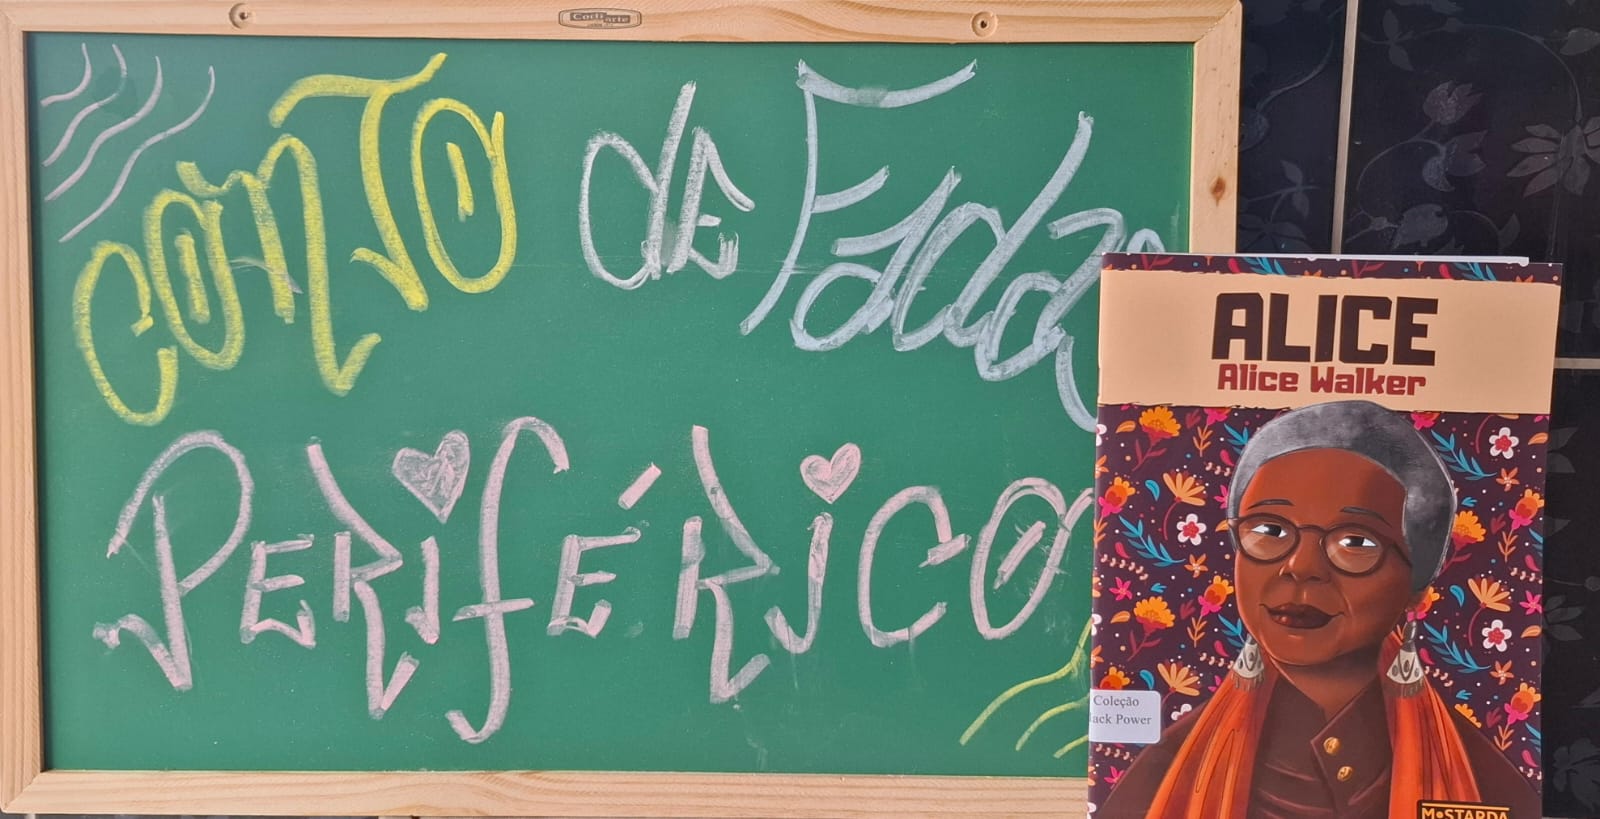 Corti arte
CONTO de FadaS
PERIFÉRICO
ALICE
Alice Walker
Coleção
lack Power
MOSTARDA